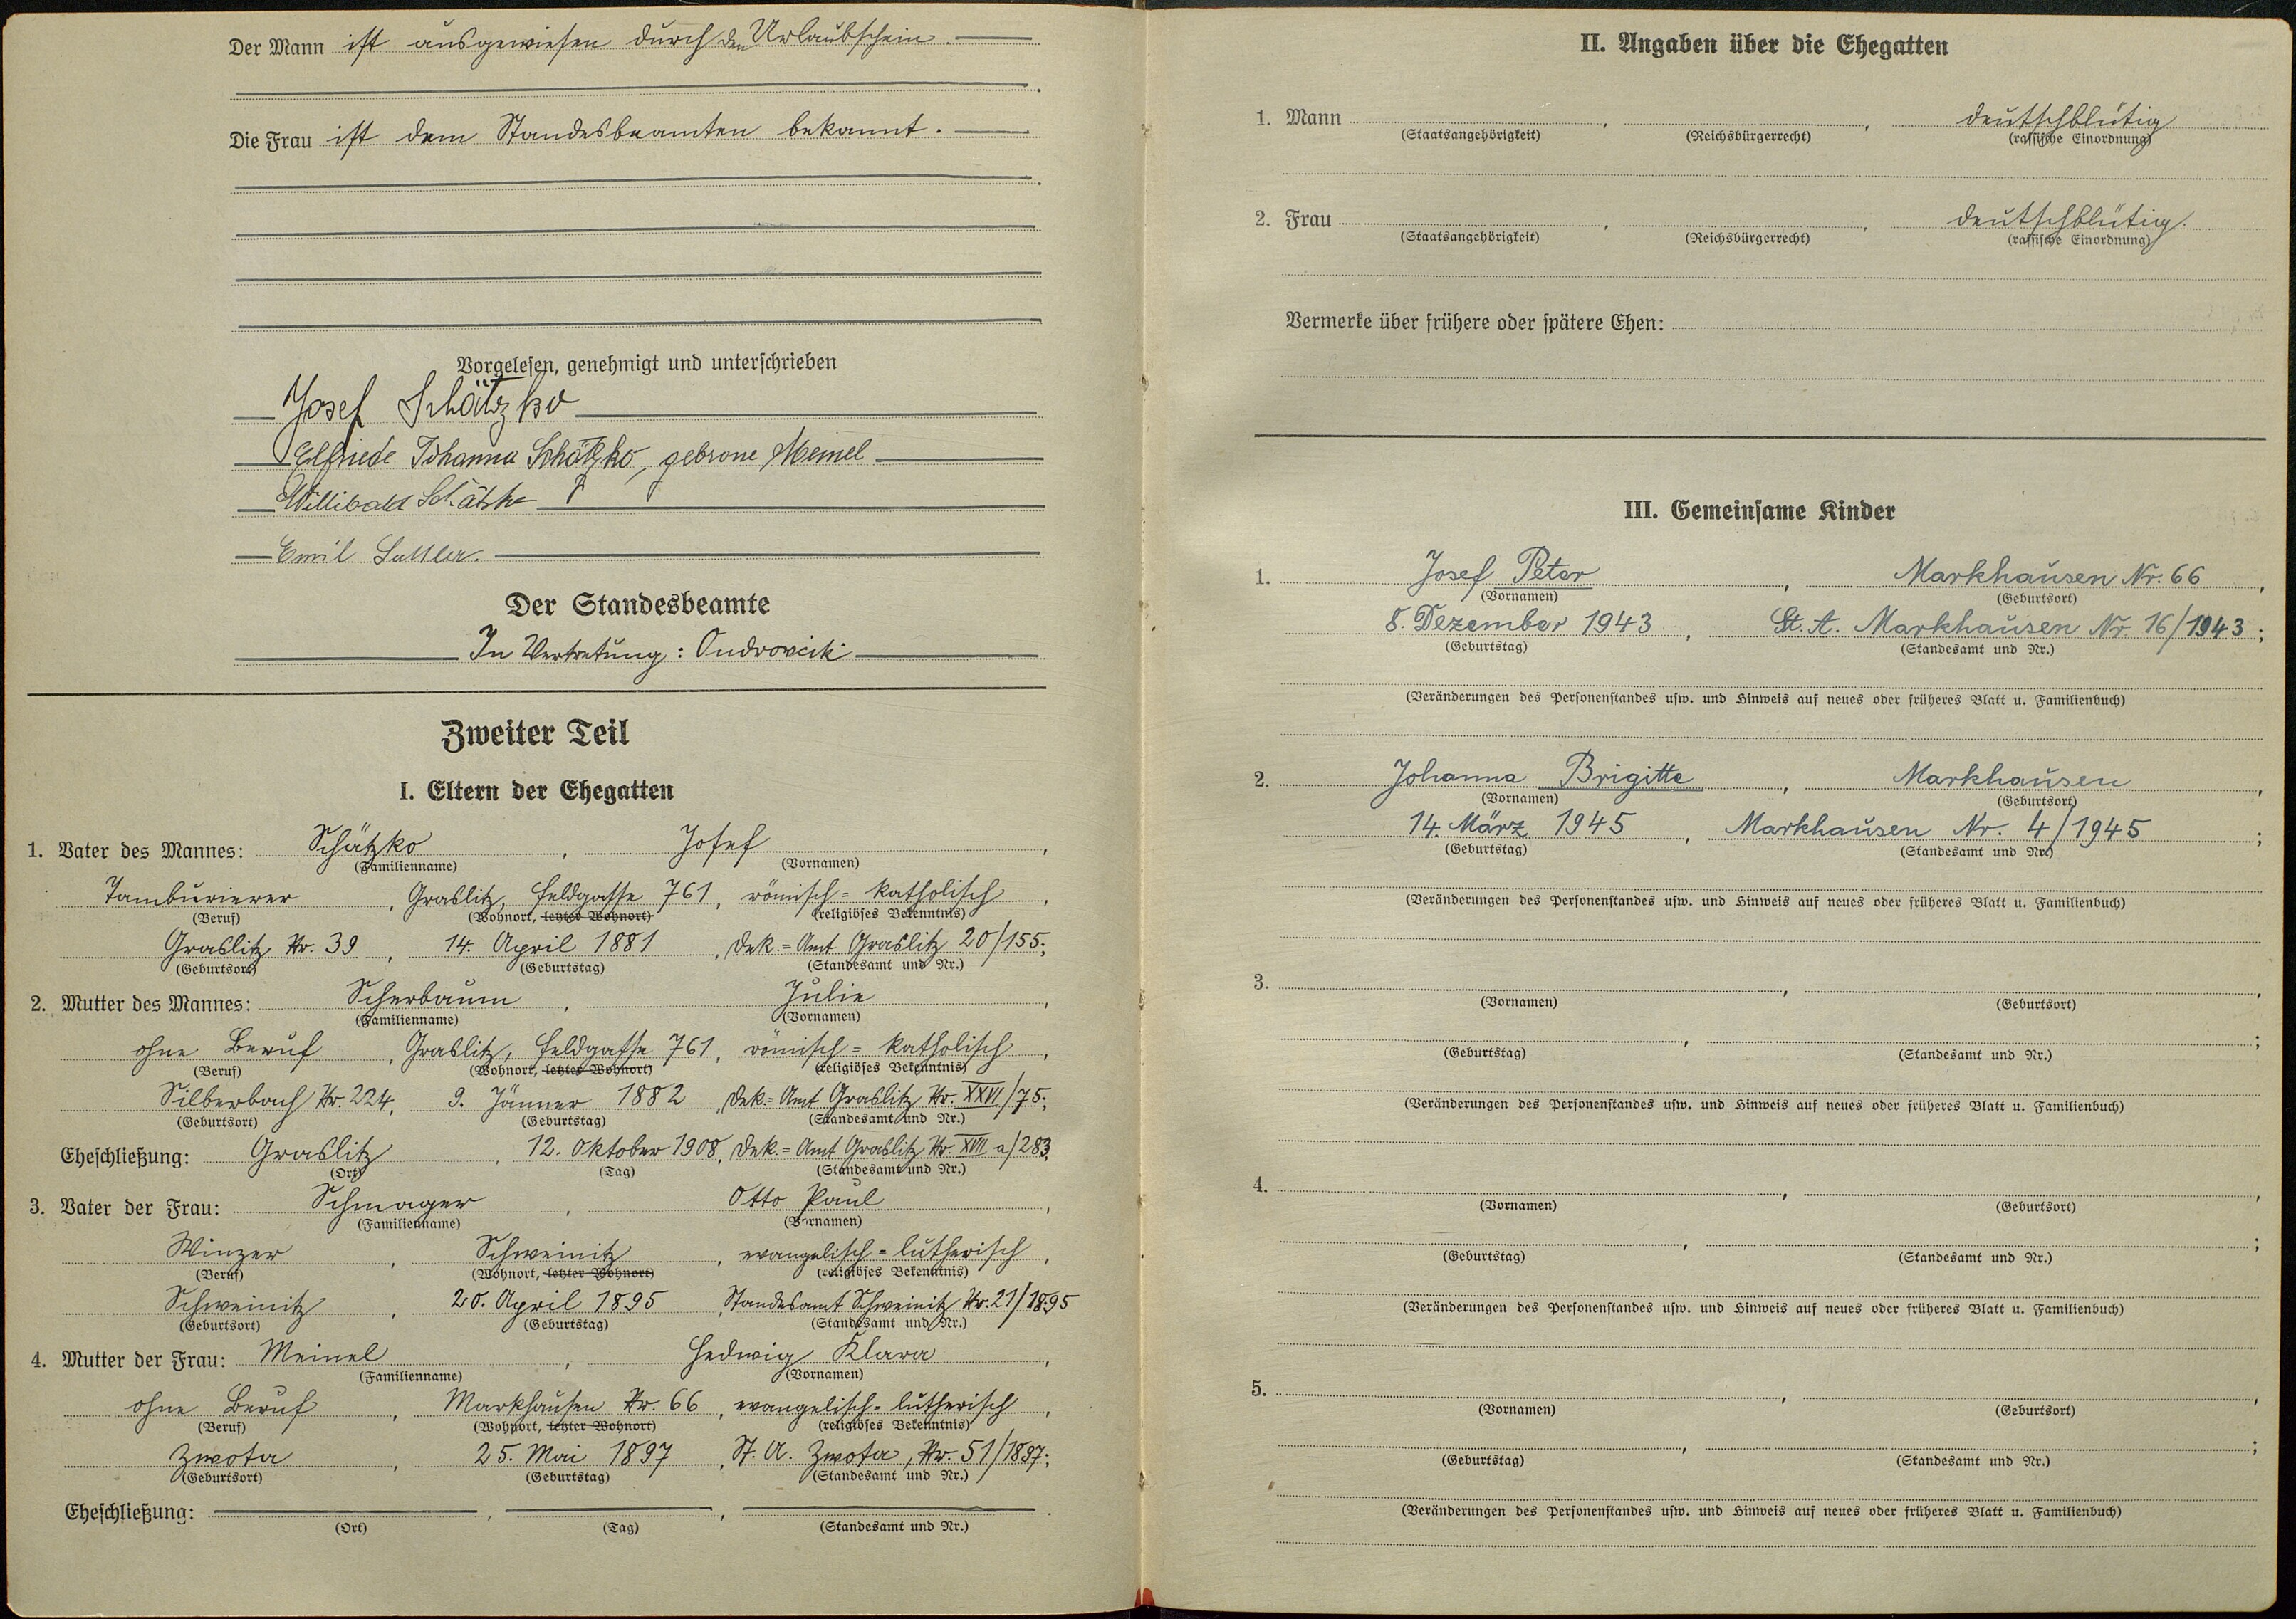 Der Mann ist ausgewiesen durch den Urlaubschein.
Die Frau ist dem Standesbeamten bekannt.
Vorgelesen, genehmigt und unterschrieben
Josef Schätzko
Elfriede Johanna Schätzko, geborne Meinel
Willibald Schätzko
Emil Sattler.
Der Standesbeamte
In Vertretung: Ondrovcik
Zweiter Teil
I. Eltern der Ehegatten
1. Vater des Mannes: Schätzko, Josef,
(Familienname) (Vornamen)
Tamburierer, Graslitz, Feldgasse 761, römisch=katholisch,
(Beruf) (Wohnort, letzter Wohnort) (religiöses Bekenntnis)
Graslitz Nr. 39, 14. April 1881, Dek.=Amt Graslitz 20/155;
(Geburtsort) (Geburtstag) (Standesamt und Nr.)
2. Mutter des Mannes: Scherbaum, Julie,
(Familienname) (Vornamen)
ohne Beruf, Graslitz, Feldgasse 761, römisch=katholisch,
(Beruf) (Wohnort, letzter Wohnort) (religiöses Bekenntnis)
Silberbach Nr. 224, 9. Jänner 1882, Dek.=Amt Graslitz Nr. XXVI/75;
(Geburtsort) (Geburtstag) (Standesamt und Nr.)
Eheschließung: Graslitz, 12. Oktober 1908, Dek.=Amt Graslitz Nr. XVII a/283,
(Ort) (Tag) (Standesamt und Nr.)
3. Vater der Frau: Schmager, Otto Paul,
(Familienname) (Vornamen)
Winzer, Schweinitz, evangelisch=lutherisch,
(Beruf) (Wohnort, letzter Wohnort) (religiöses Bekenntnis)
Schweinitz, 20. April 1895, Standesamt Schweinitz Nr. 21/1895
(Geburtsort) (Geburtstag) (Standesamt und Nr.)
4. Mutter der Frau: Meinel, Hedwig Klara,
(Familienname) (Vornamen)
ohne Beruf, Markhausen Nr. 66, evangelisch=lutherisch,
(Beruf) (Wohnort, letzter Wohnort) (religiöses Bekenntnis)
Zwota, 25. Mai 1897, St. A. Zwota, Nr. 51/1897;
(Geburtsort) (Geburtstag) (Standesamt und Nr.)
Eheschließung: , , .
(Ort) (Tag) (Standesamt und Nr.)
II. Angaben über die Ehegatten
1. Mann , , deutschblütig
(Staatsangehörigkeit) (Reichsbürgerrecht) (rassische Einordnung)
2. Frau , , deutschblütig.
(Staatsangehörigkeit) (Reichsbürgerrecht) (rassische Einordnung)
Vermerke über frühere oder spätere Ehen:
III. Gemeinsame Kinder
1. Josef Peter, Markhausen Nr. 66,
(Vornamen) (Geburtsort)
8. Dezember 1943, St. A. Markhausen Nr. 16/1943;
(Geburtstag) (Standesamt und Nr.)
(Veränderungen des Personenstandes usw. und Hinweis auf neues oder früheres Blatt u. Familienbuch)
2. Johanna Brigitte, Markhausen,
(Vornamen) (Geburtsort)
14. März 1945, Markhausen Nr. 4/1945;
(Geburtstag) (Standesamt und Nr.)
(Veränderungen des Personenstandes usw. und Hinweis auf neues oder früheres Blatt u. Familienbuch)
3. , ,
(Vornamen) (Geburtsort)
, ;
(Geburtstag) (Standesamt und Nr.)
(Veränderungen des Personenstandes usw. und Hinweis auf neues oder früheres Blatt u. Familienbuch)
4. , ,
(Vornamen) (Geburtsort)
, ;
(Geburtstag) (Standesamt und Nr.)
(Veränderungen des Personenstandes usw. und Hinweis auf neues oder früheres Blatt u. Familienbuch)
5. , ,
(Vornamen) (Geburtsort)
, ;
(Geburtstag) (Standesamt und Nr.)
(Veränderungen des Personenstandes usw. und Hinweis auf neues oder früheres Blatt u. Familienbuch)